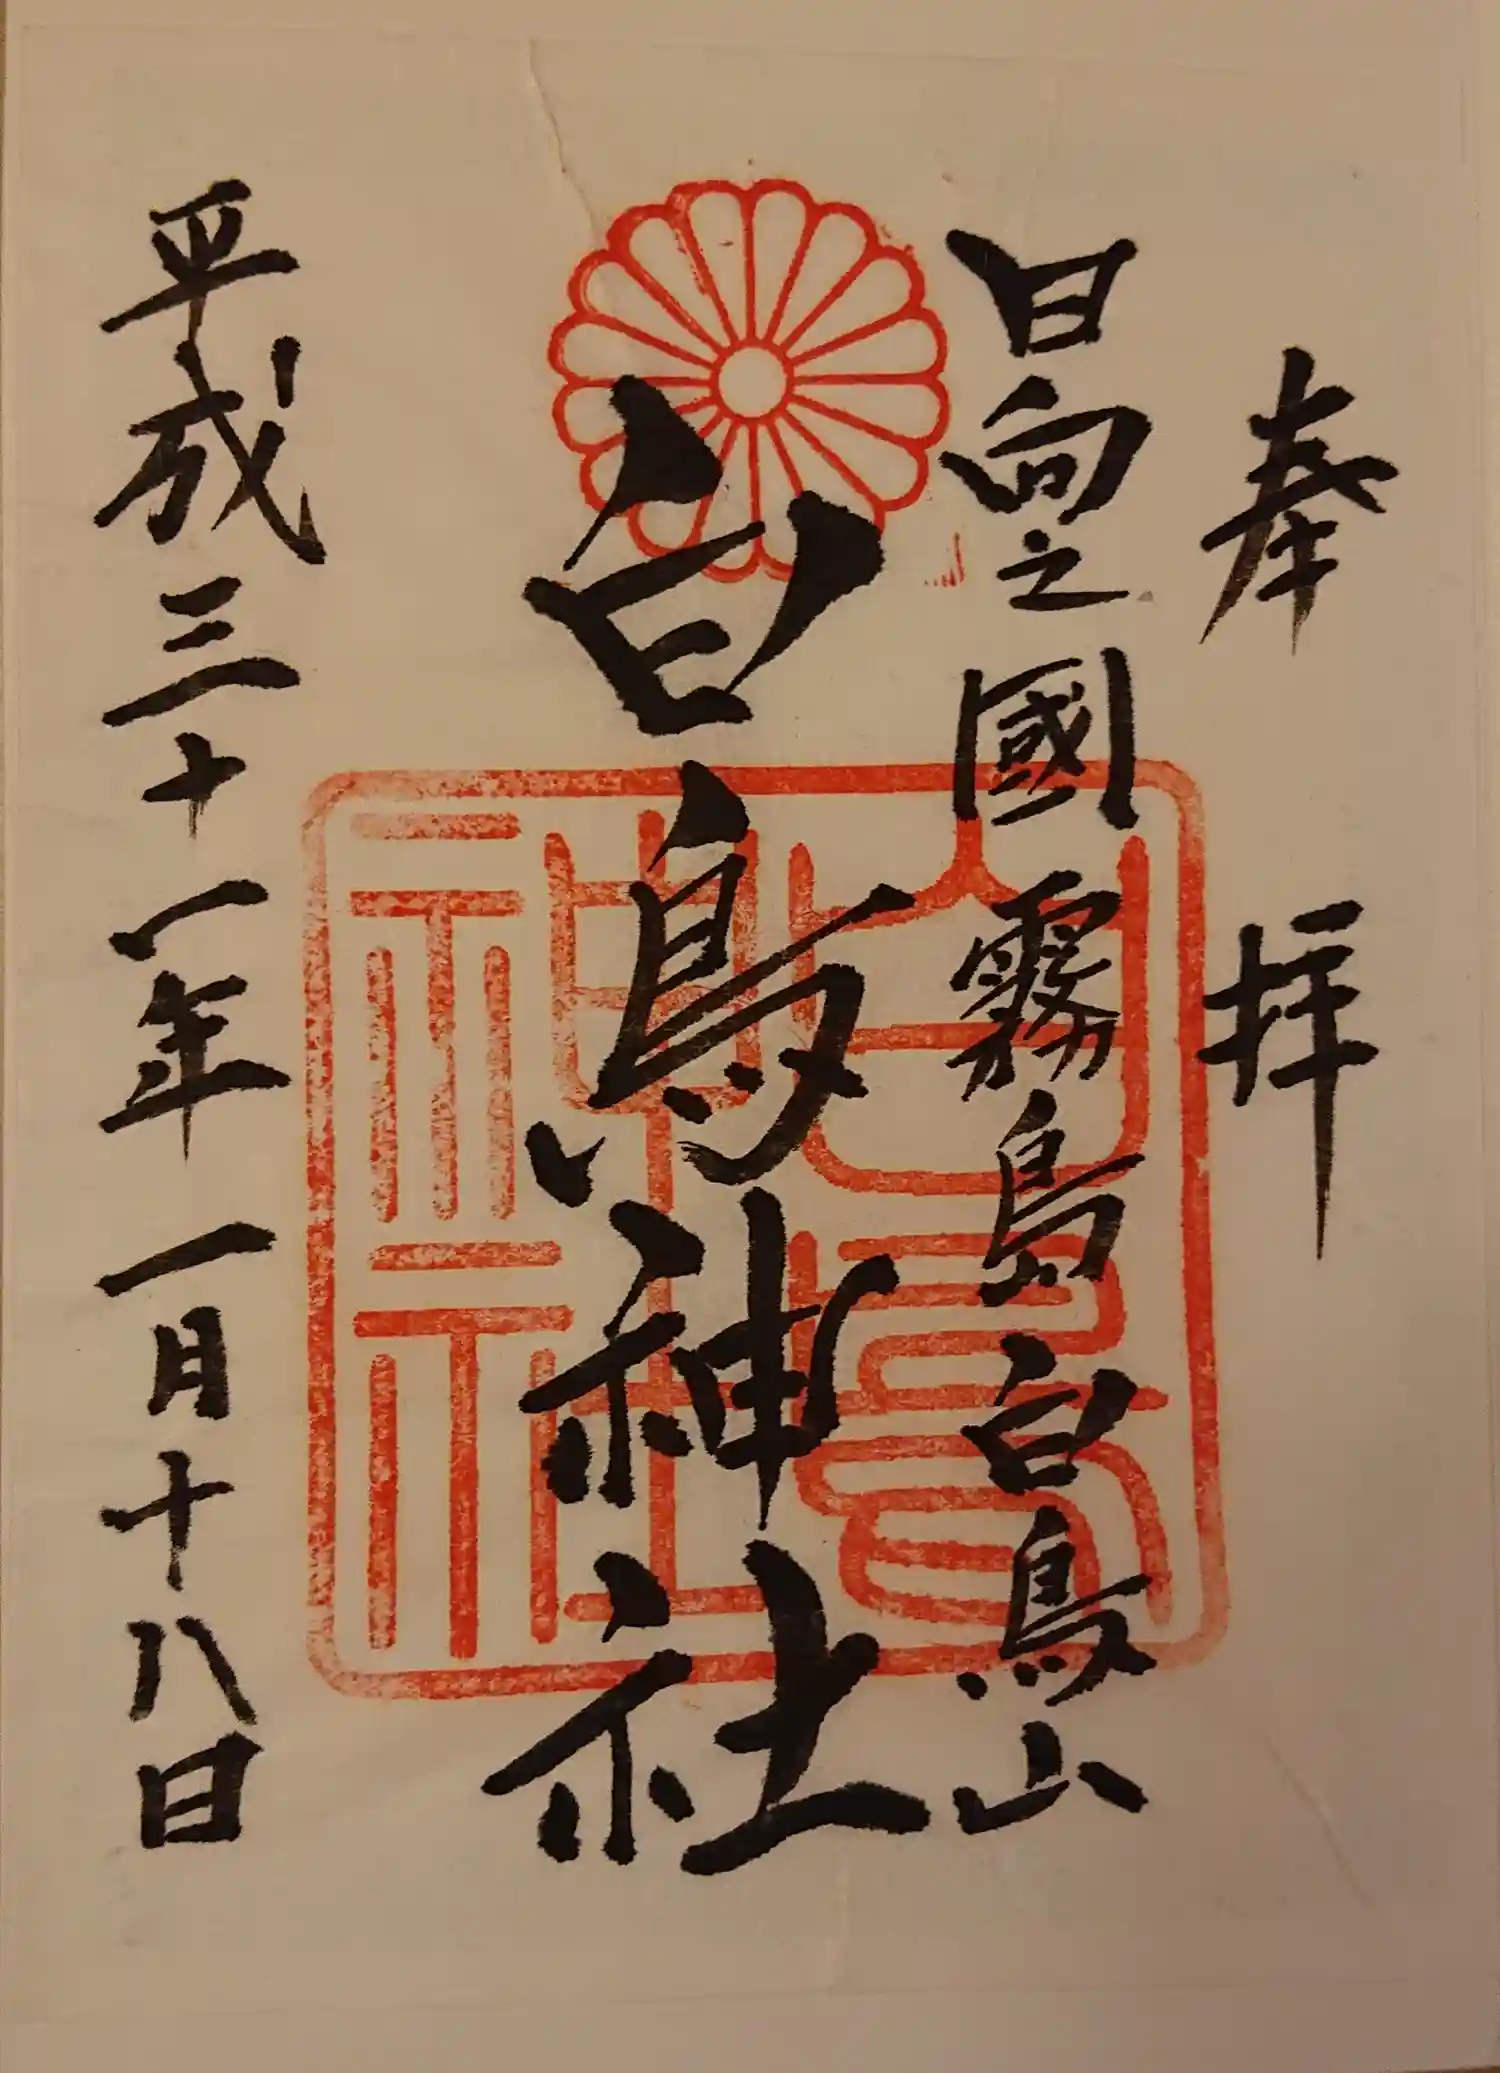 奉拝
日向之國霧島白鳥山
白鳥神社
白鳥神社
平成三十一年一月十八日